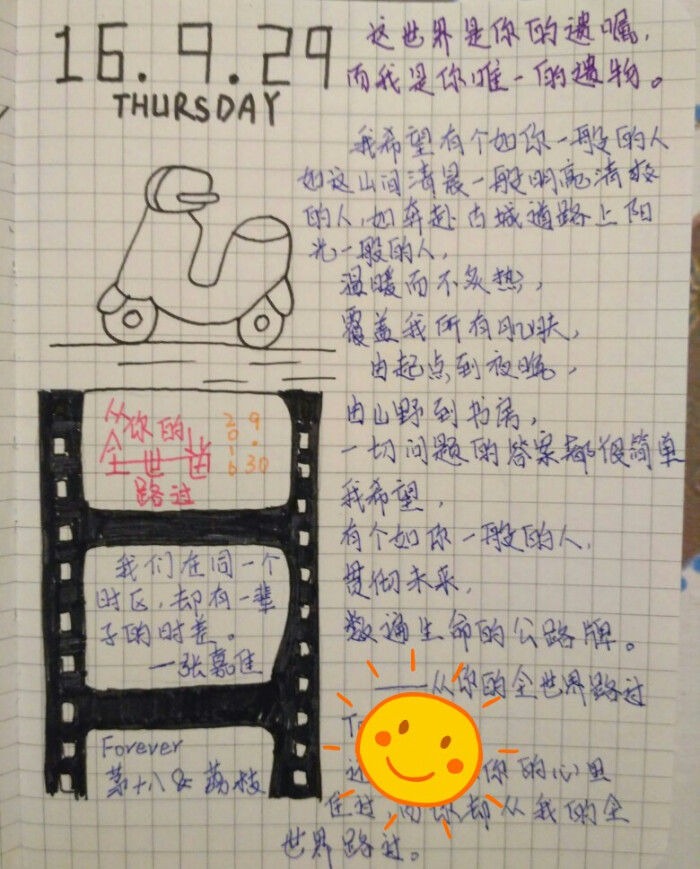 16.9.29
THURSDAY
这世界是你的遗嘱，
而我是你唯一的遗物。
我希望有个如你一般的人
如这山间清晨一般明亮清爽
的人，如奔赴古城道路上阳
光一般的人，
温暖而不炙热，
覆盖我所有肌肤，
由起点到夜晚，
由山野到书房，
一切问题的答案都很简单
我希望，
有个如你一般的人，
贯彻未来，
数遍生命的公路牌。
——从你的全世界路过
你的心里
住过，而你却从我的全
世界路过。
从你的
全世界
路过
2016
9.30
我们在同一个
时区，却有一辈
子的时差。
—张嘉佳
Forever
第十八 荔枝